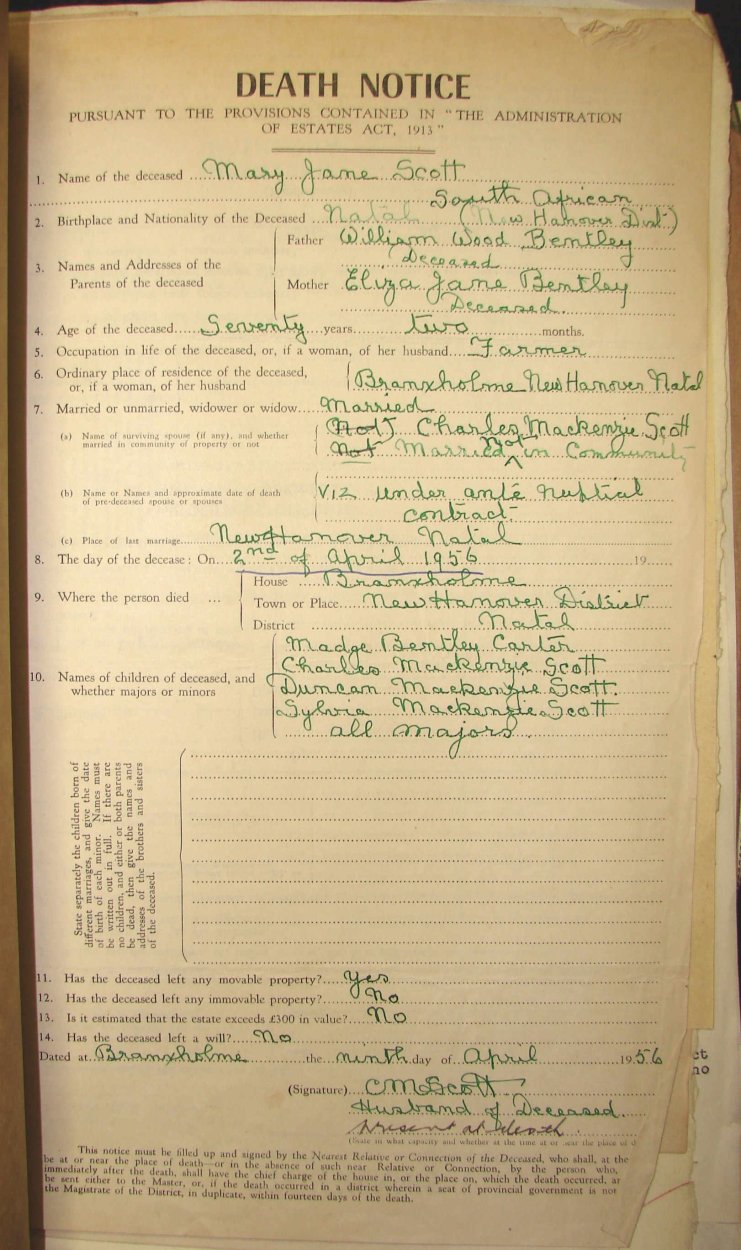 DEATH NOTICE
PURSUANT TO THE PROVISIONS CONTAINED IN "THE ADMINISTRATION
OF ESTATES ACT, 1913"
1. Name of the deceased Mary Jane Scott
South African
2. Birthplace and Nationality of the Deceased Natal (New Hanover Dist)
Father William Wood Bentley
Deceased
3. Names and Addresses of the
Parents of the deceased
Mother Eliza Jane Bentley
Deceased.
4. Age of the deceased Seventy years two months.
5. Occupation in life of the deceased, or, if a woman, of her husband Farmer
6. Ordinary place of residence of the deceased,
or, if a woman, of her husband
Branxholme New Hanover Natal
7. Married or unmarried, widower or widow Married
(a) Name of surviving spouse (if any), and whether
married in community of property or not
Charles Mackenzie Scott
Not Married Not in Community
(b) Name or Names and approximate date of death
of pre-deceased spouse or spouses
viz under ante nuptial
contract.
(c) Place of last marriage New Hanover Natal
8. The day of the decease: On 2nd of April 1956 19
9. Where the person died ...
House Branxholme
Town or Place New Hanover District
District Natal
10. Names of children of deceased, and
whether majors or minors
Madge Bentley Carter
Charles Mackenzie Scott
Duncan Mackenzie Scott.
Sylvia Mackenzie Scott
all majors.
State separately the children born of
different marriages, and give the date
of birth of each minor. Names must
be written out in full. If there are
no children, and either or both parents
be dead, then give the names and
addresses of the brothers and sisters
of the deceased.
11. Has the deceased left any movable property? Yes
12. Has the deceased left any immovable property? No
13. Is it estimated that the estate exceeds £300 in value? No
14. Has the deceased left a will? No
Dated at Branxholme the ninth day of April 1956
(Signature) C M Scott
Husband of Deceased.
Present at death.
(State in what capacity and whether at the time at or near the place of d
This notice must be filled up and signed by the Nearest Relative or Connection of the Deceased, who shall, at the
be at or near the place of death—or in the absence of such near Relative or Connection, by the person who,
immediately after the death, shall have the chief charge of the house in, or the place on, which the death occurred, ar
be sent either to the Master, or, if the death occurred in a district wherein a seat of provincial government is not
the Magistrate of the District, in duplicate, within fourteen days of the death.
ct
no